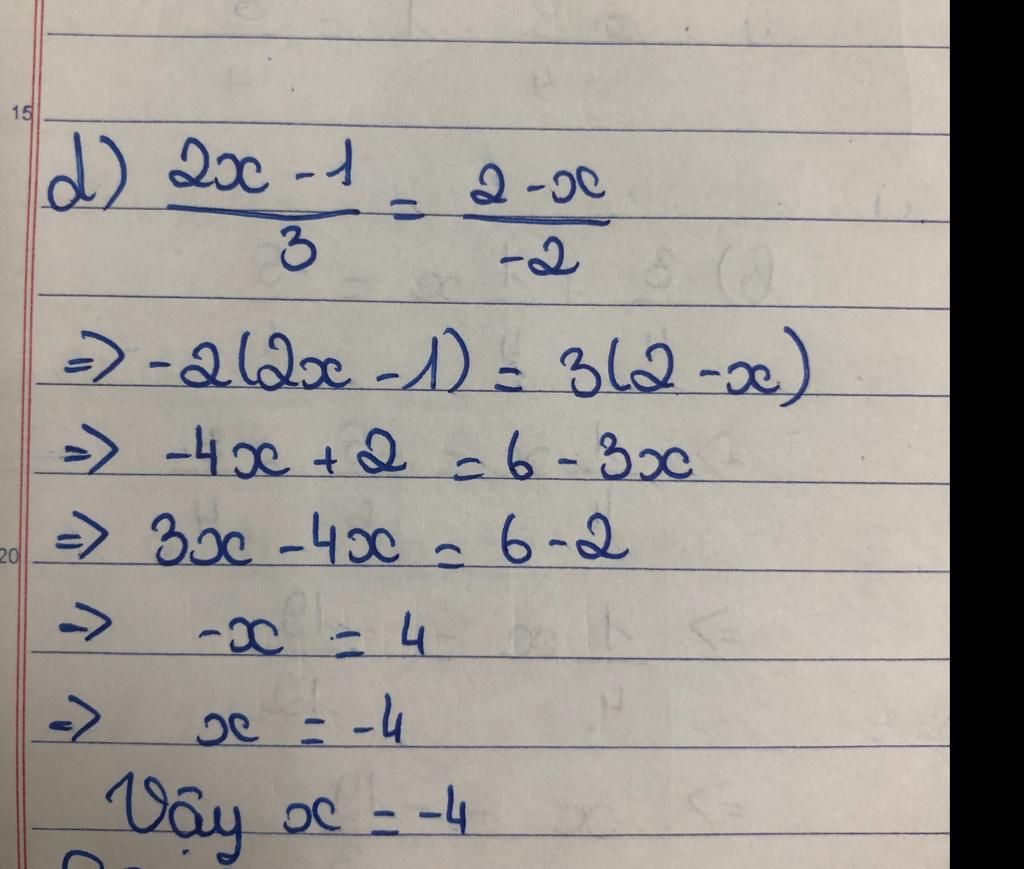 15
d) \frac{2x - 1}{3} = \frac{2 - x}{-2}
=> -2(2x - 1) = 3(2 - x)
=> -4x + 2 = 6 - 3x
20
=> 3x - 4x = 6 - 2
=> -x = 4
=> x = -4
Vậy x = -4